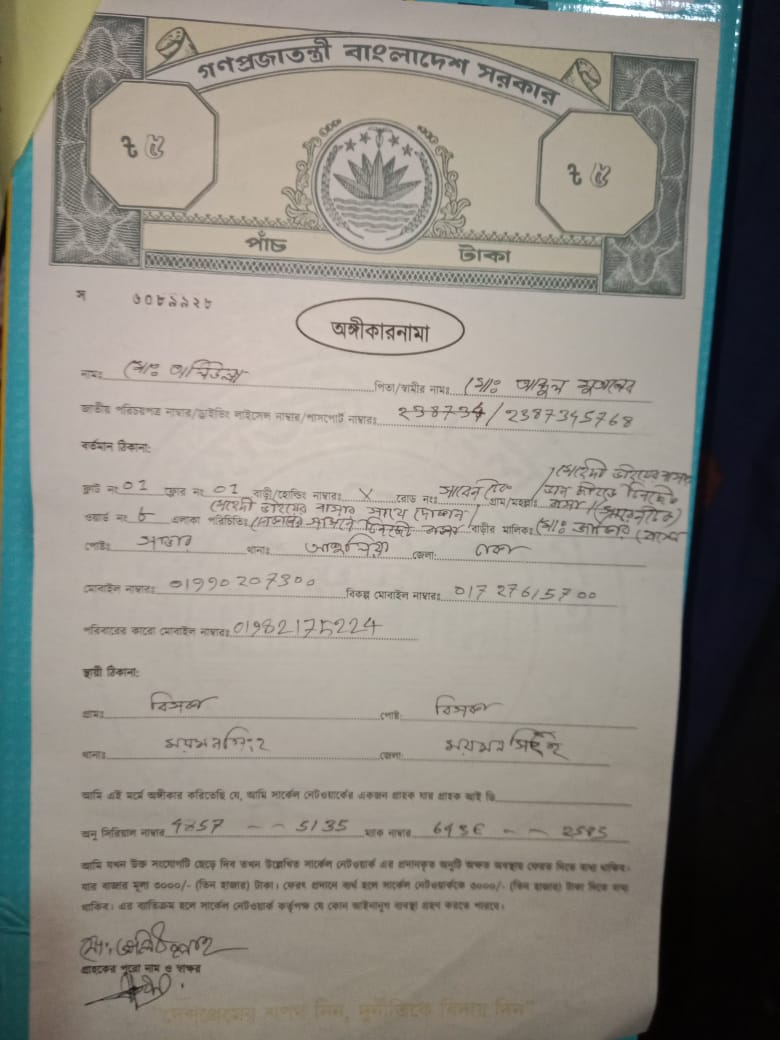 গণপ্রজাতন্ত্রী বাংলাদেশ সরকার
৳ ৫ ৳ ৫
পাঁচ টাকা
স ৬০৮৯৯২৮
অঙ্গীকারনামা
নামঃ মোঃ পিতা/স্বামীর নামঃ মোঃ আব্দুল
জাতীয় পরিচয়পত্র নাম্বার/ড্রাইভিং লাইসেন্স নাম্বার/পাসপোর্ট নাম্বারঃ 238734/2387345768
বর্তমান ঠিকানা:
ফ্লাট নং 01 ফ্লোর নং 01 বাড়ী/হোল্ডিং নাম্বারঃ X রোড নংঃ গ্রাম/মহল্লাঃ
ওয়ার্ড নং 6 এলাকা পরিচিতিঃ বাড়ীর মালিকঃ মোঃ
পোষ্টঃ সাভার থানাঃ আশুলিয়া জেলা: ঢাকা
মোবাইল নাম্বারঃ 01990207300 বিকল্প মোবাইল নাম্বারঃ 01727615700
পরিবারের কারো মোবাইল নাম্বারঃ 01982175224
স্থায়ী ঠিকানা:
গ্রামঃ বিসকা পোষ্ট: বিসকা
থানাঃ ময়মনসিংহ জেলা: ময়মনসিংহ
আমি এই মর্মে অঙ্গীকার করিতেছি যে, আমি সার্কেল নেটওয়ার্কের একজন গ্রাহক যার গ্রাহক আই ডি
অনু সিরিয়াল নাম্বার 4857 - - 5135 ম্যাক নাম্বার 6496 - - 2585
আমি যখন উক্ত সংযোগটি ছেড়ে দিব তখন উল্লেখিত সার্কেল নেটওয়ার্ক এর প্রদানকৃত অনুটি অক্ষত অবস্থায় ফেরত দিতে বাধ্য থাকিব।
যার বাজার মূল্য ৩০০০/- (তিন হাজার) টাকা। ফেরৎ প্রদানে ব্যর্থ হলে সার্কেল নেটওয়ার্ককে ৩০০০/- (তিন হাজার) টাকা দিতে বাধ্য
থাকিব। এর ব্যতিক্রম হলে সার্কেল নেটওয়ার্ক কর্তৃপক্ষ যে কোন আইনানুগ ব্যবস্থা গ্রহণ করতে পারবে।
গ্রাহকের পুরো নাম ও স্বাক্ষর
"দেশপ্রেমের শপথ নিন, দুর্নীতিকে বিদায় দিন"